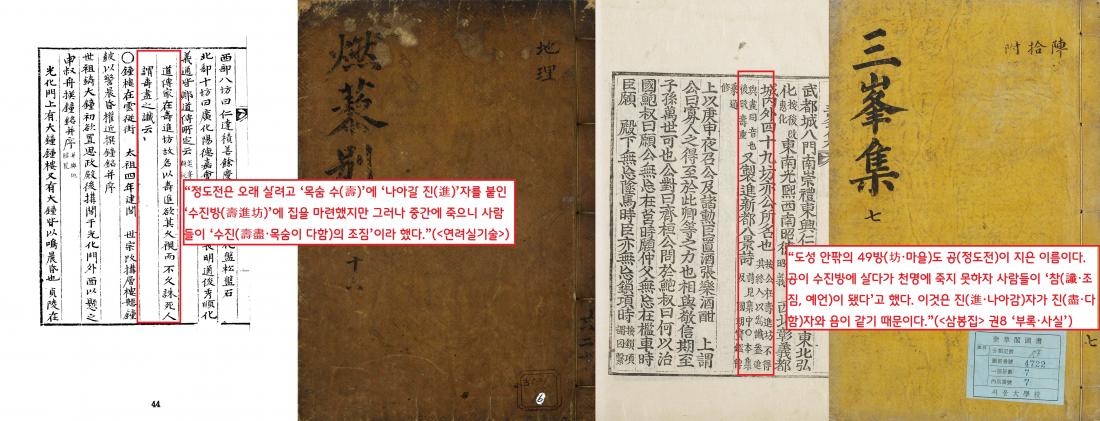 西部八坊曰仁達積善餘慶
盤松盤石
北部十坊曰廣化陽德嘉會
明道後秀順化
義通皆鄭道傳所定云
道傳家在壽進坊故名以壽進欲其久視而不久誅死人
謂壽盡之讖云云
○鐘樓在雲從街 太祖四年建閣 世宗改構層樓懸鐘
以警晨昏權近撰鐘銘幷序
世祖鑄大鐘初置思政殿後搆閣于光化門外西以懸之
申叔舟撰鐘銘幷序
光化門上有大鐘鐘樓又有大鐘皆以鳴晨昏也 貞陵在
44
“정도전은 오래 살려고 ‘목숨 수(壽)’에 ‘나아갈 진(進)’자를 붙인
‘수진방(壽進坊)’에 집을 마련했지만 그러나 중간에 죽으니 사람
들이 ‘수진(壽盡·목숨이 다함)의 조짐’이라 했다.”(<연려실기술>)
地理
燃藜別
十
武都城八門南崇禮東興仁
東北弘
化
東南光熙西南昭德
西北彰義都
城內外四十九坊亦公所名也
又製進新都八景詩
上以庚申夜召公及諸勳臣置酒張樂酒酣 上謂
公曰寡人之得至於此卿等之力也相與敬信期至
子孫萬世可也公對曰齊桓公問於鮑叔曰何以治
國鮑叔曰願公無忘在莒時願仲父無忘在檻車時
臣願 殿下無忘墜馬時臣亦無忘鎖項時
陣拾附
三峯集 七
“도성 안팎의 49방(坊·마을)도 공(정도전)이 지은 이름이다.
공이 수진방에 살다가 천명에 죽지 못하자 사람들이 ‘참(讖·조
짐, 예언)이 됐다’고 했다. 이것은 진(進·나아감)자가 진(盡·다
함)자와 음이 같기 때문이다.”(<삼봉집> 권8 ‘부록·사실’)
奎章閣圖書
4722
7
7
서울大學校
七